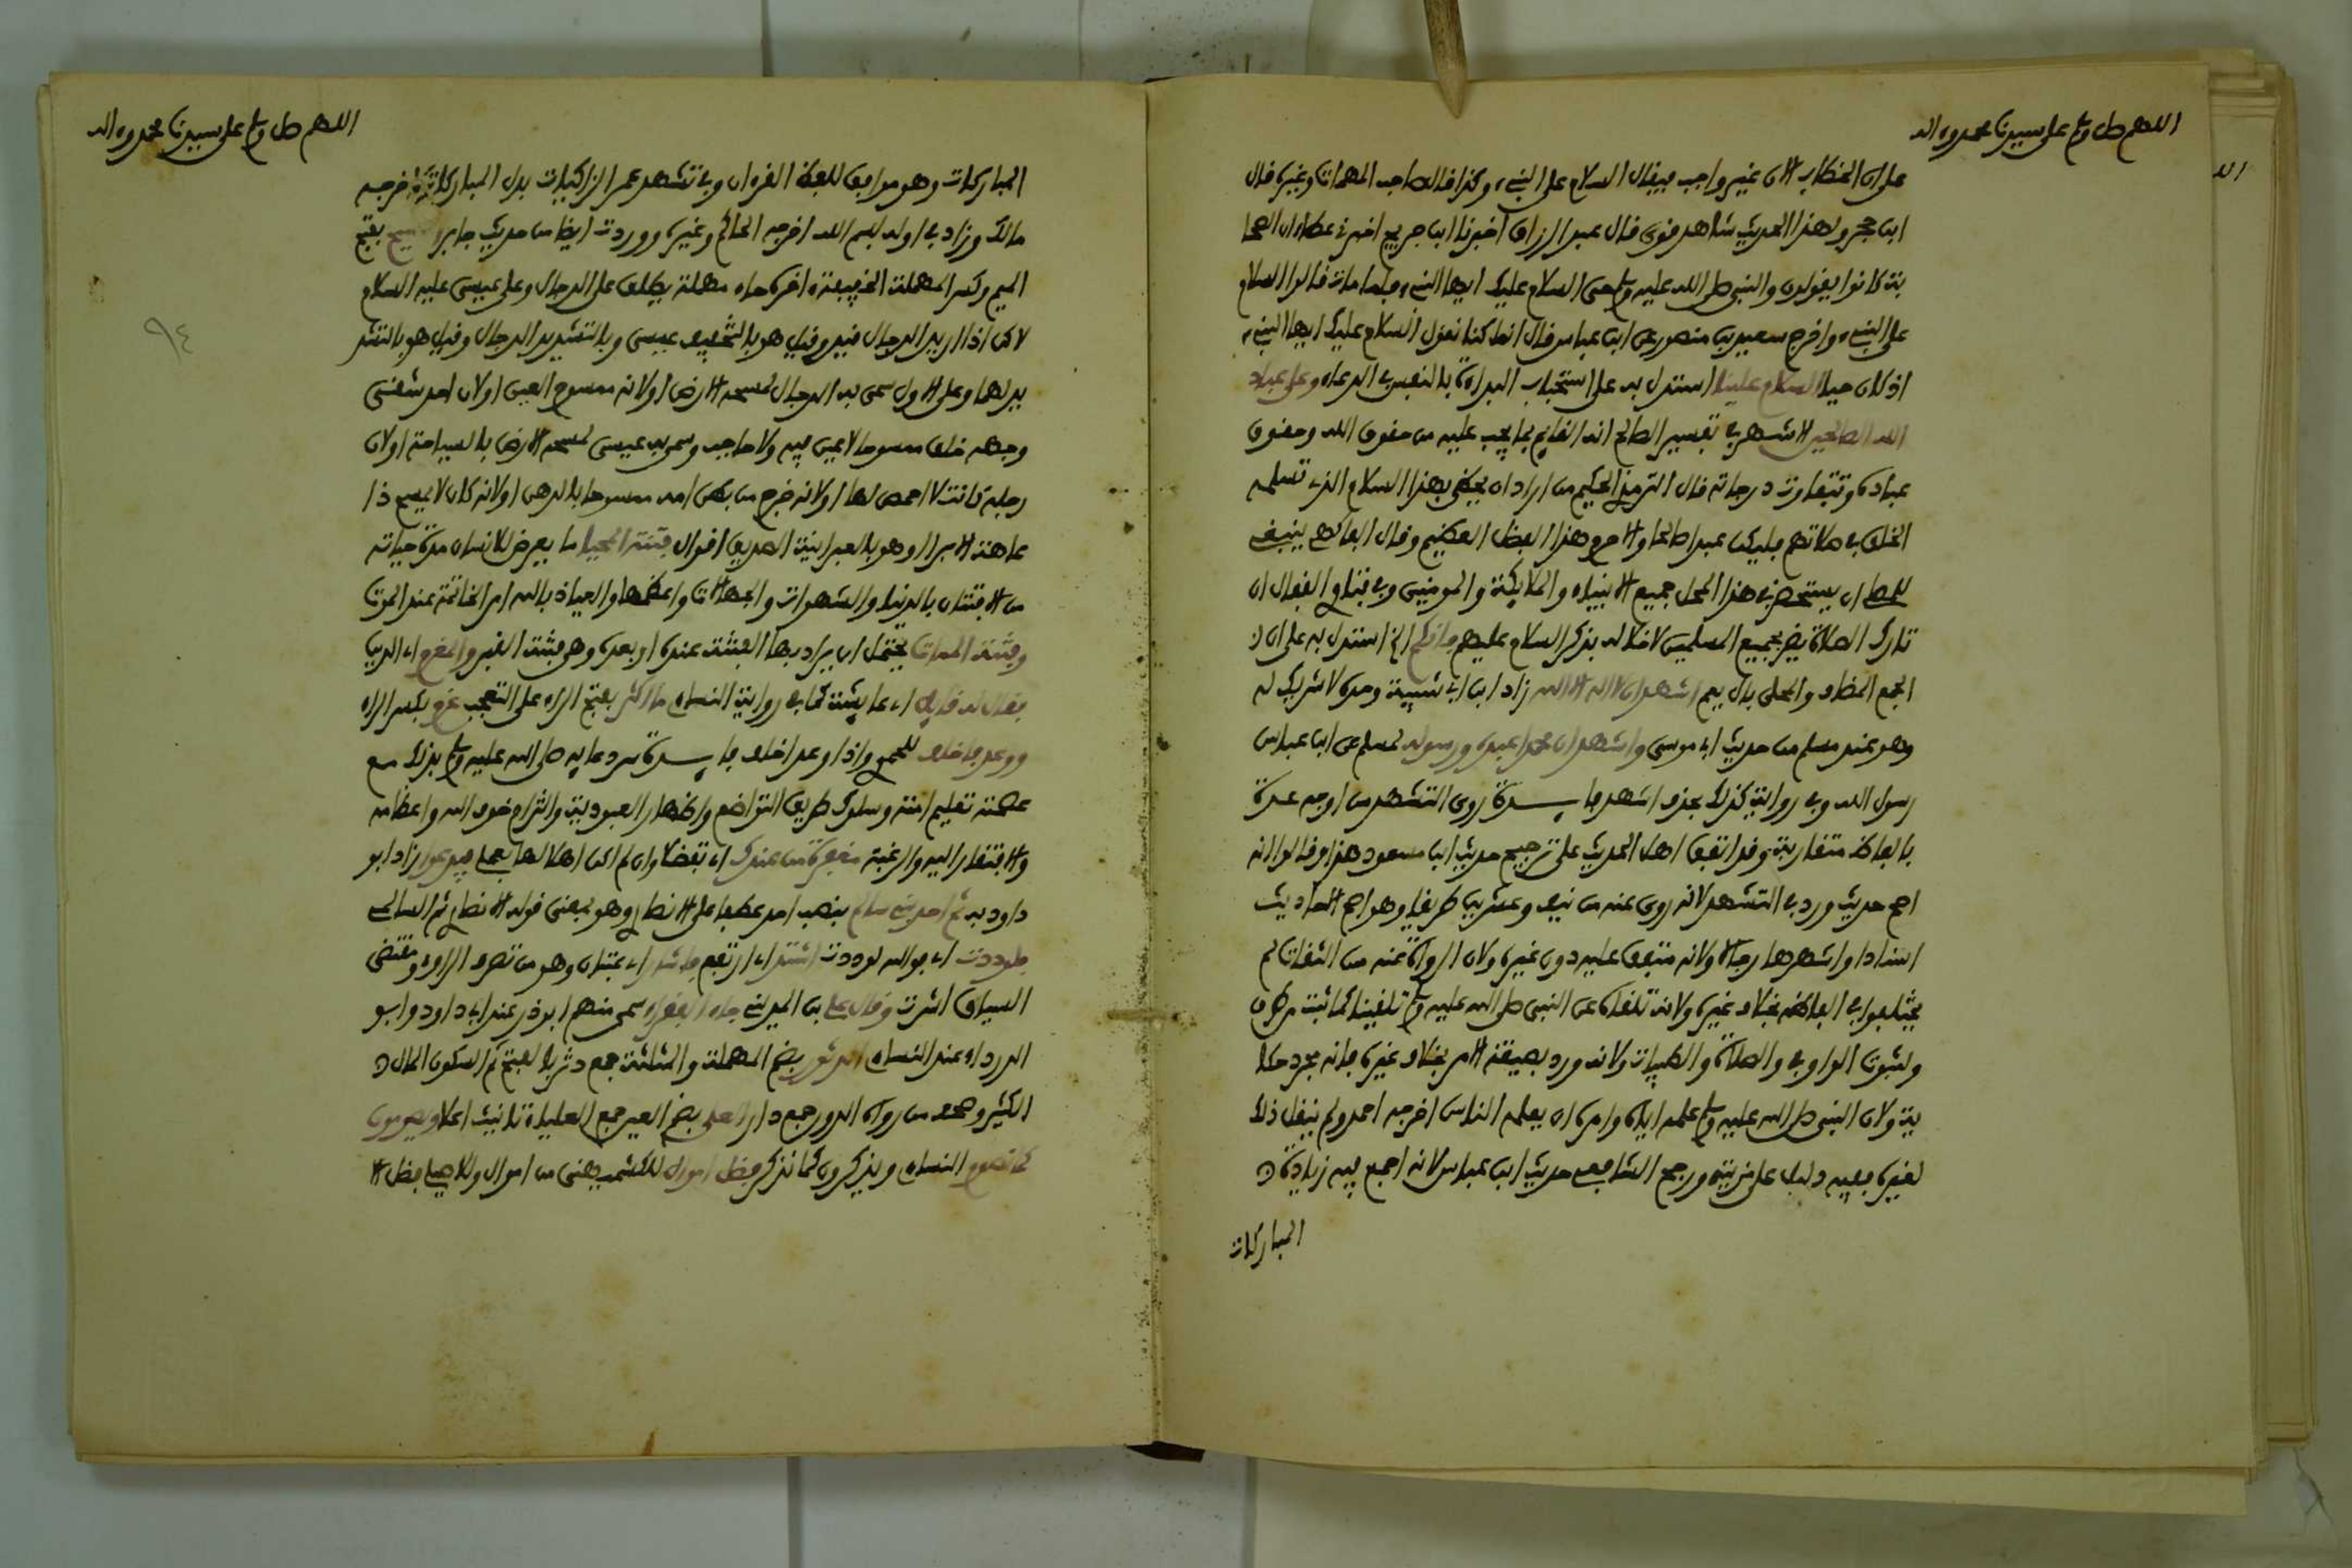 اللهم صل وسلم على سيدنا محمد وءاله
على ان الخطاب الان غير واجب فيقال السلام على النبيء وكذا قال صاحب المهمات وغيره قال
ابن حجر ولهذا الحديث شاهد قوي قال عبد الرزاق اخبرنا ابن جريج اخبرني عطاء ان الصحا
بة كانوا يقولون والنبي صلى الله عليه وسلم حي السلام عليك ايها النبيء فلما مات قالوا السلام
على النبيء واخرج سعيد بن منصور عن ابن عباس قال انما كنا نقول السلام عليك ايها النبيء
اذ كان حيا السلام علينا استدل به على استحباب البداءة بالنفس في الدعاء وعلى عباد
الله الصالحين الاشهر في تفسير الصالح انه القايم بما يجب عليه من حقوق الله وحقوق
عباده وتتفاوت درجاته قال الترمذي الحكيم من اراد ان يحظى بهذا السلام الذي تسلمه
الخلق في صلاتهم فليكن عبدا صالحا والا حرم هذا الفضل العظيم وقال الفاكهي ينبغي
للمصلي ان يستحضر في هذا المحل جميع الانبياء والملايكة والمومنين وفي فتاوي القفال ان
تارك الصلاة يضر بجميع المسلمين لاخلاله بذكر السلام عليهم فانكم الخ استدل به على ان
الجمع المضاف والمحلى بال يعم اشهد ان لا اله الا الله زاد ابن ابي شيبة وحده لا شريك له
وهو عند مسلم من حديث ابي موسى واشهد ان محمدا عبده ورسوله لمسلم عن ابن عباس
رسول الله وفي رواية كذلك بحذف اشهد فايدة روي التشهد من اوجه عدة
بالفاظ متقاربة وقد اتفق اهل الحديث على ترجيح حديث ابن مسعود هذا وقالوا انه
اصح حديث ورد في التشهد لانه روي عنه من نيف وعشرين طريقا وهو اصح الاحاديث
اسنادا واشهرها رجالا ولانه متفق عليه دون غيره ولان الرواة عنه من الثقات لم
يختلفوا في الفاظه بخلاف غيره ولانه تلقاه عن النبي صلى الله عليه وسلم تلقينا كما ثبت من طرق
ولثبوت الواو في والصلاة والطيبات ولانه ورد بصيغة الامر بخلاف غيره فانه مجرد حكا
ية ولان النبي صلى الله عليه وسلم علمه اياه وامره ان يعلمه الناس اخرجه احمد ولم ينقل ذلك
لغيره ففيه دليل على مزيته ورجح الشافعي حديث ابن عباس لانه اجمع فيه زيادة
المباركات
اللهم صل وسلم على سيدنا محمد وءاله
٩٤
المباركات وهو موافق للفظ القرءان وفي تشهد عمر الزاكيات بدل المباركات اخرجه
مالك وزاد في اوله بسم الله اخرجه الحاكم وغيره ووردت ايضا من حديث جابر المسيح بفتح
الميم وكسر المهملة الخفيفة ءاخره حاء مهملة يطلق على الدجال وعلى عيسى عليه السلام
لاكن اذا اريد الدجال قيد وقيل هو بالتخفيف عيسى وبالتشديد الدجال وقيل هو بالتشد
يد لهما وعلى الاول سمي به الدجال لمسحه الارض او لانه ممسوح العين او لان احد شقي
وجهه خلق ممسوحا لا عين فيه ولا حاجب وسمي به عيسى لمسحه الارض بالسياحة او لان
رجله كانت لا اخمص لها او لانه خرج من بطن امه ممسوحا بالدهن او لانه كان لا يمسح ذا
عاهة الا برا وهو بالعبرانية الصديق اقوال فتنة المحيا ما يعرض للانسان مدة حياته
من الافتتان بالدنيا والشهوات والجهالات واعظمها والعياذ بالله امر الخاتمة عند الموت
وفتنة الممات يحتمل ان يراد بها الفتنة عنده او بعده وهي فتنة القبر والمغرم اي الدين
فقال له قايل اي عايشة كما في رواية النساءي ما اكثر بفتح الراء على التعجب غرم بكسر الراء
ووعد فاخلف للحموي واذا وعد اخلف فايدة سر دعايه صلى الله عليه وسلم بذلك مع
عصمته تعليم امته وسلوك طريق التواضع واظهار العبودية والتزام خوف الله واعظامه
والافتقار اليه والرغبة مغفرة من عندك اي تفضلا وان لم اكن اهلا لها بعملي فيدعوا زاد ابو
داود به ثم احدثني سالم بنصب احد عطفا على الانصار وهو بمعنى قوله الانصار ثم السالمي
فلوددت اي فوالله لوددت اشتد اي ارتفع فاشار اي عتبان وهو من تصرف الراوي ومقتضى
السياق اشرت وقال علي بن المديني جاء الفقراء سمي منهم ابو ذر عند ابي داود وابو
الدرداء عند النساءي الدثور بضم المهملة والمثلثة جمع دثر بالفتح ثم السكون المال
الكثير وصحف من رواه الدور جمع دار العلى بضم العين جمع العلياء تانيث اعلا ويصومون
كما نصوم النساءي ويذكرون كما نذكر فضل اموال للكشميهني من اموال وللاصيلي فضل الا